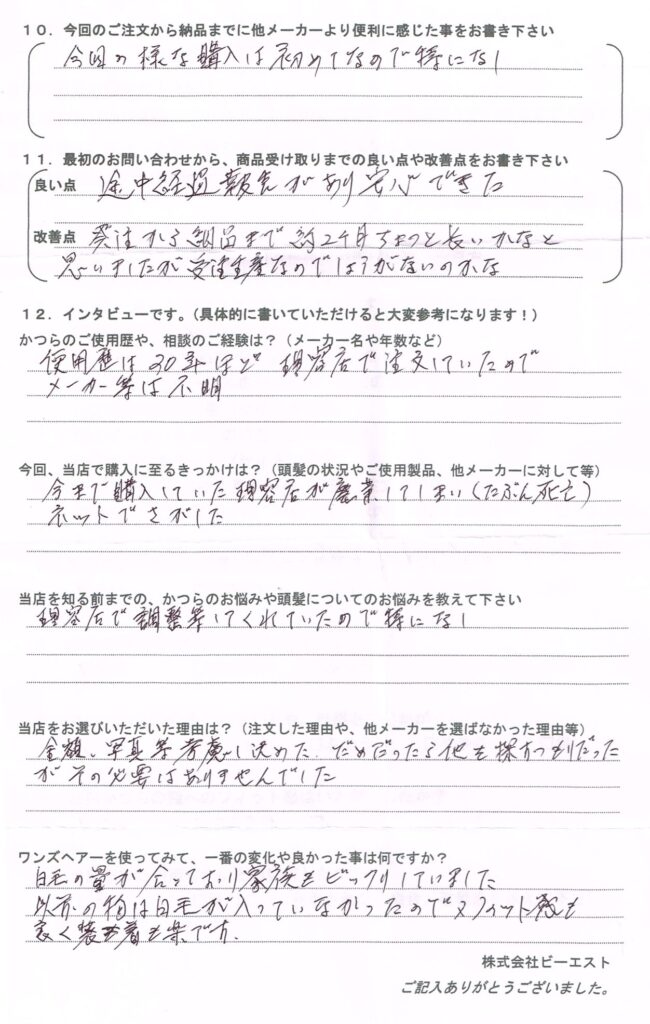 １０．今回のご注文から納品までに他メーカーより便利に感じた事をお書き下さい
今回の様な購入は初めてなので特になし
１１．最初のお問い合わせから、商品受け取りまでの良い点や改善点をお書き下さい
良い点 途中経過報告があり安心できた
改善点 発注から納品まで約2ヶ月ちょっと長いかなと
思いましたが受注生産なのでしょうがないのかな
１２．インタビューです。（具体的に書いていただけると大変参考になります！）
かつらのご使用歴や、相談のご経験は？（メーカー名や年数など）
使用歴は30年ほど 理容店で注文していたので
メーカー等は不明
今回、当店で購入に至るきっかけは？（頭髪の状況やご使用製品、他メーカーに対して等）
今まで購入していた理容店が廃業してしまい（たぶん死亡）
ネットでさがした
当店を知る前までの、かつらのお悩みや頭髪についてのお悩みを教えて下さい
理容店で調整等してくれていたので特になし
当店をお選びいただいた理由は？（注文した理由や、他メーカーを選ばなかった理由等）
金額、写真等考慮し決めた．だめだったら他を探すつもりだった
がその必要はありませんでした
ワンズヘアーを使ってみて、一番の変化や良かった事は何ですか？
白毛の量が合っており家族もビックリしていました
以前の物は白毛が入っていなかったので フィット感も
良く装着も楽です．
株式会社ビーエスト
ご記入ありがとうございました。